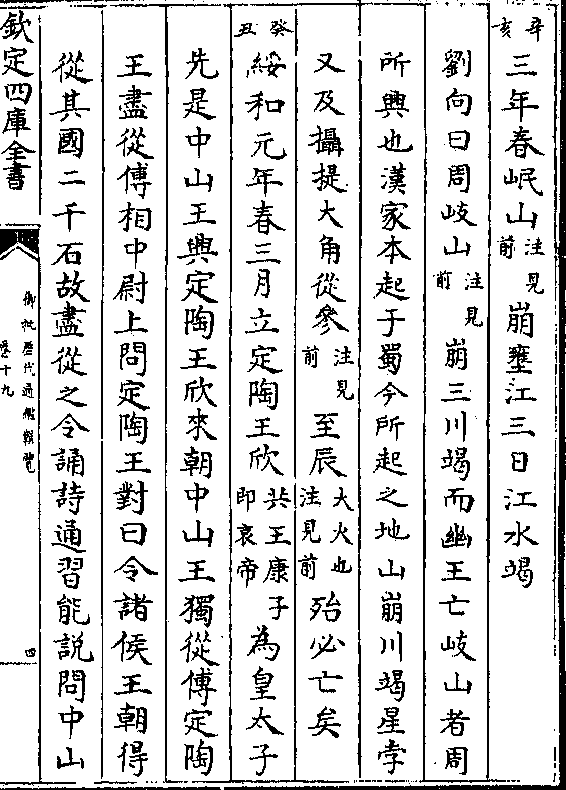 辛亥三年春岷山注見前崩壅江三日江水竭
劉向曰周岐山注見前崩三川竭而幽王亡岐山者周
所興也漢家本起于蜀今所起之地山崩川竭星孛
又及攝提大角從參注見前至辰大火也注見前殆必亡矣
癸丑綏和元年春三月立定陶王欣共王康子即哀帝為皇太子
先是中山王興定陶王欣來朝中山王獨從傅定陶
王盡從傅相中尉上問定陶王對曰令諸侯王朝得
從其國二千石故盡從之令誦詩通習能説問中山
欽定四庫全書
御批歴代通鑑輯覽
卷十九
四